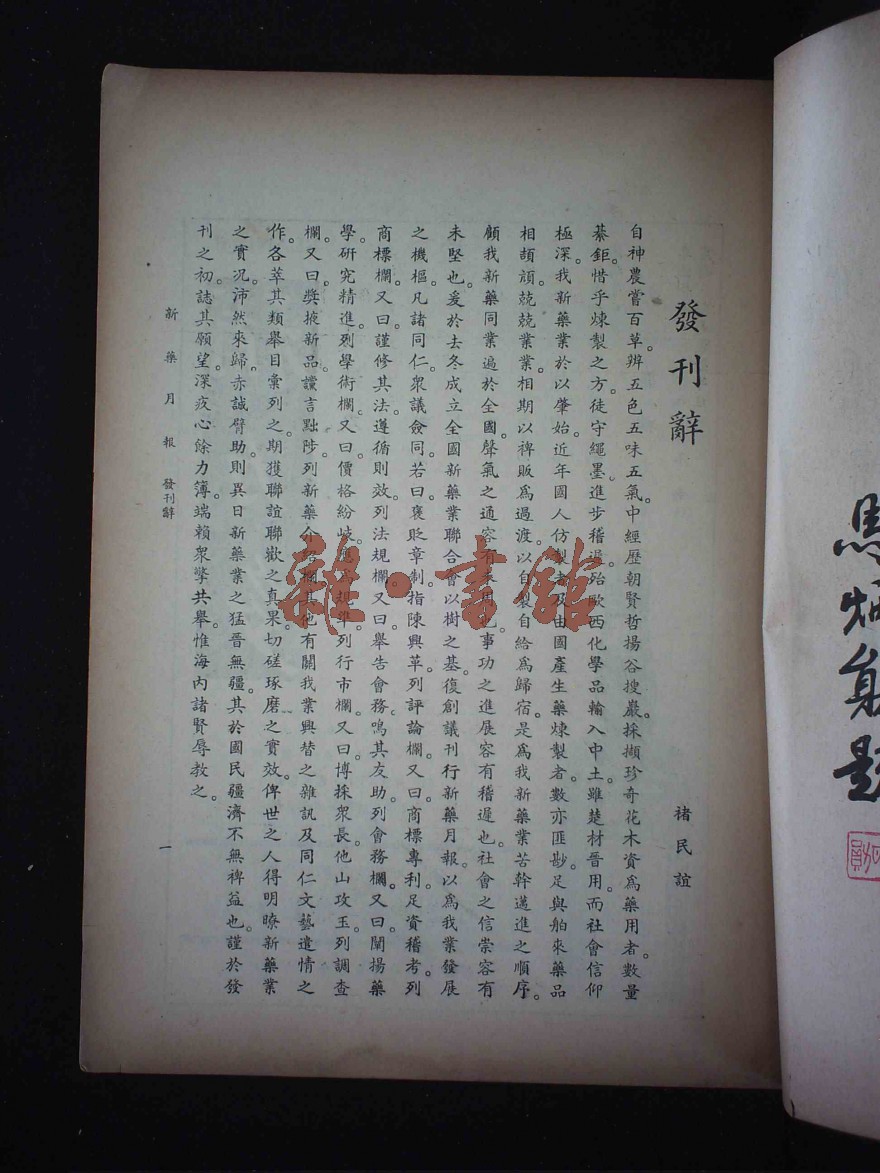 發刊辭
褚民誼
自神農嘗百草。辨五色五味五氣。中經歷朝賢哲揚谷搜巖。採擷珍奇花木資爲藥用者。數量
綦鉅。惜乎煉製之方。徒守繩墨。進步稽遲。殆歐西化學品輸入中土。雖楚材晉用。而社會信仰
極深。我新藥業於以肇始。近年國人仿製者。及由國產生藥煉製者。數亦匪尠。足與舶來藥品
相頡頏。兢兢業業。相期以裨販爲過渡。以自製自給爲歸宿。是爲我新藥業苦幹邁進之順序。
顧我新藥同業。遍於全國。聲氣之通。容有未周也。事功之進展。容有稽遲也。社會之信崇。容有
未堅也。爰於去冬成立全國新藥業聯合會以樹之基。復創議刊行新藥月報。以爲我業發展
之機樞。凡諸同仁。衆議僉同。若曰。褒貶章制。指陳興革。列評論欄。又曰。商標專利。足資稽考。列
商標欄。又曰。謹修其法。遵循則效。列法規欄。又曰。舉告會務。鳴其友助。列會務欄。又曰。闡揚藥
學。研究精進。列學術欄。又曰。價格紛岐。應爲規準。列行市欄。又曰。博採衆長。他山攻玉。列調查
欄。又曰。獎掖新品。讜言黜陟。列新藥介紹欄。其他有關我業興替之雜訊及同仁文藝遣情之
作。各萃其類。舉目彙列之。期獲聯誼聯歡之真果。切磋琢磨之實效。俾世之人得明瞭新藥業
之實况。沛然來歸。赤誠臂助。則異日新藥業之猛晉無疆。其於國民疆濟不無裨益也。謹於發
刊之初。誌其願望。深疚心餘力簿。端賴衆擎共舉。惟海內諸賢辱教之。
新藥月報 發刊辭
一
雜·書館